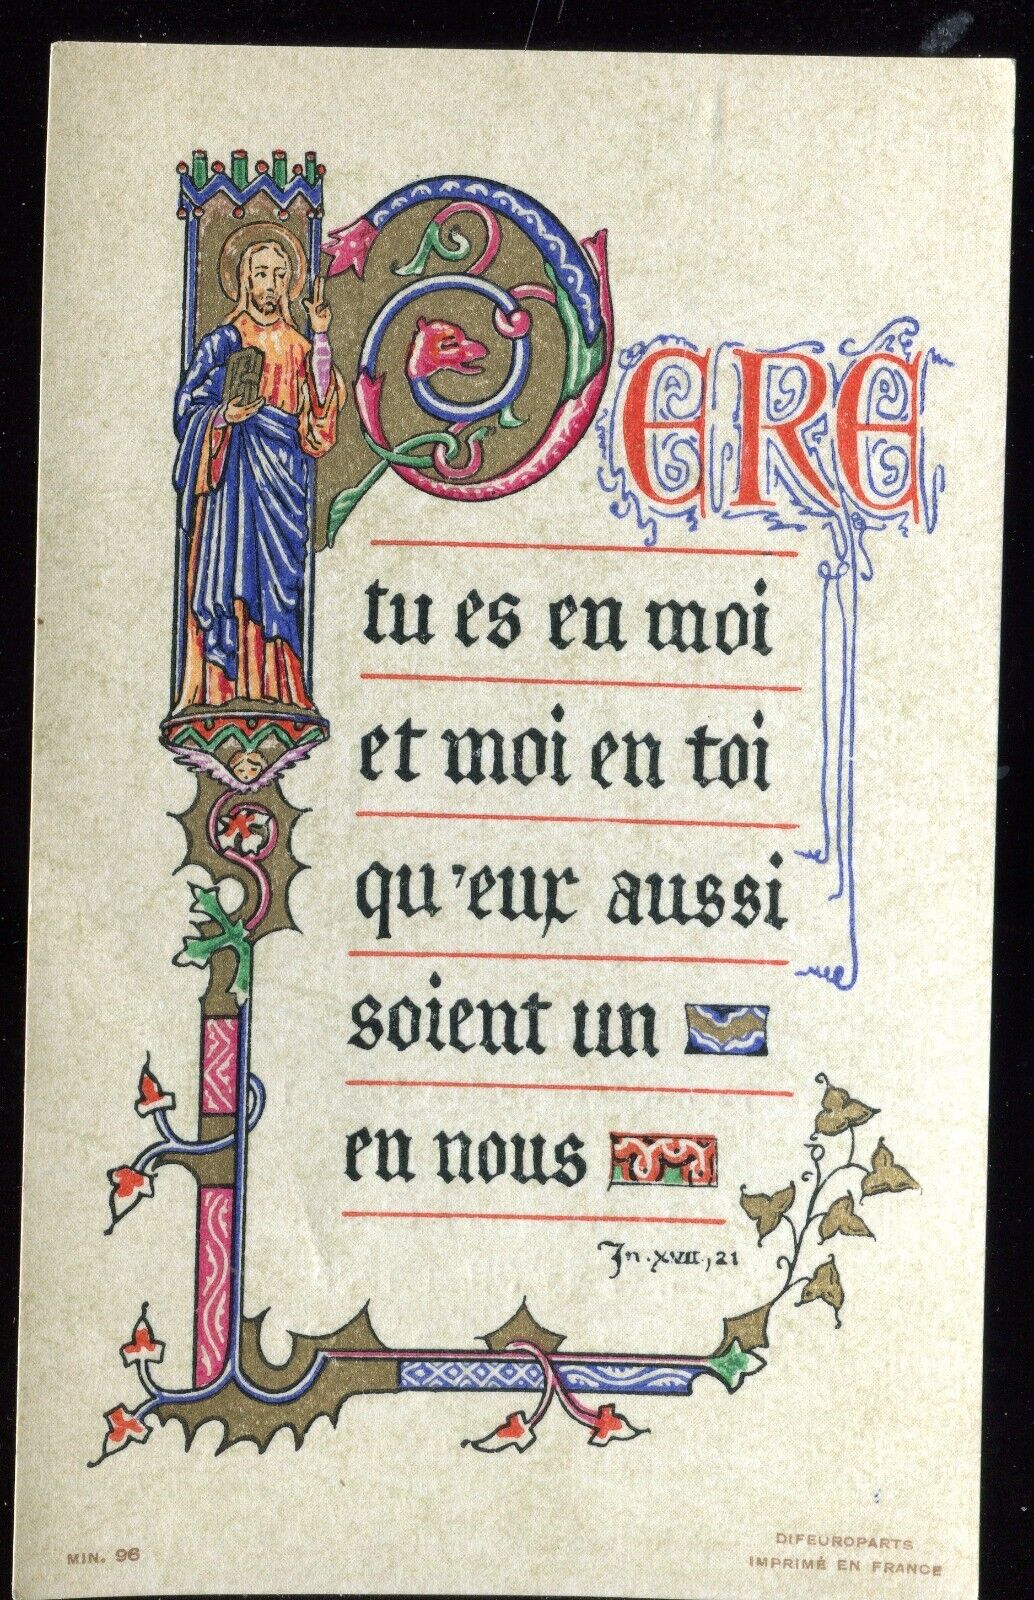 PERE
tu es en moi
et moi en toi
qu'eux aussi
soient un
en nous
Jn. XVII, 21
MIN. 96
DIFEUROPARTS
IMPRIMÉ EN FRANCE